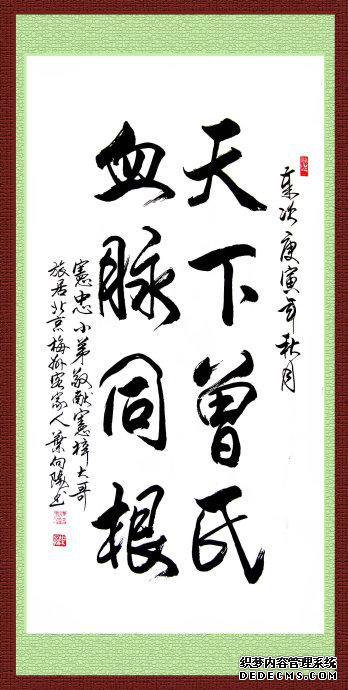 歲次庚寅年秋月
天下曾氏
血脉同根
憲忠小弟敬献憲梓大哥
旅居北京梅州客家人葉向陽书
织梦内容管理系统
DEDECMS.COM